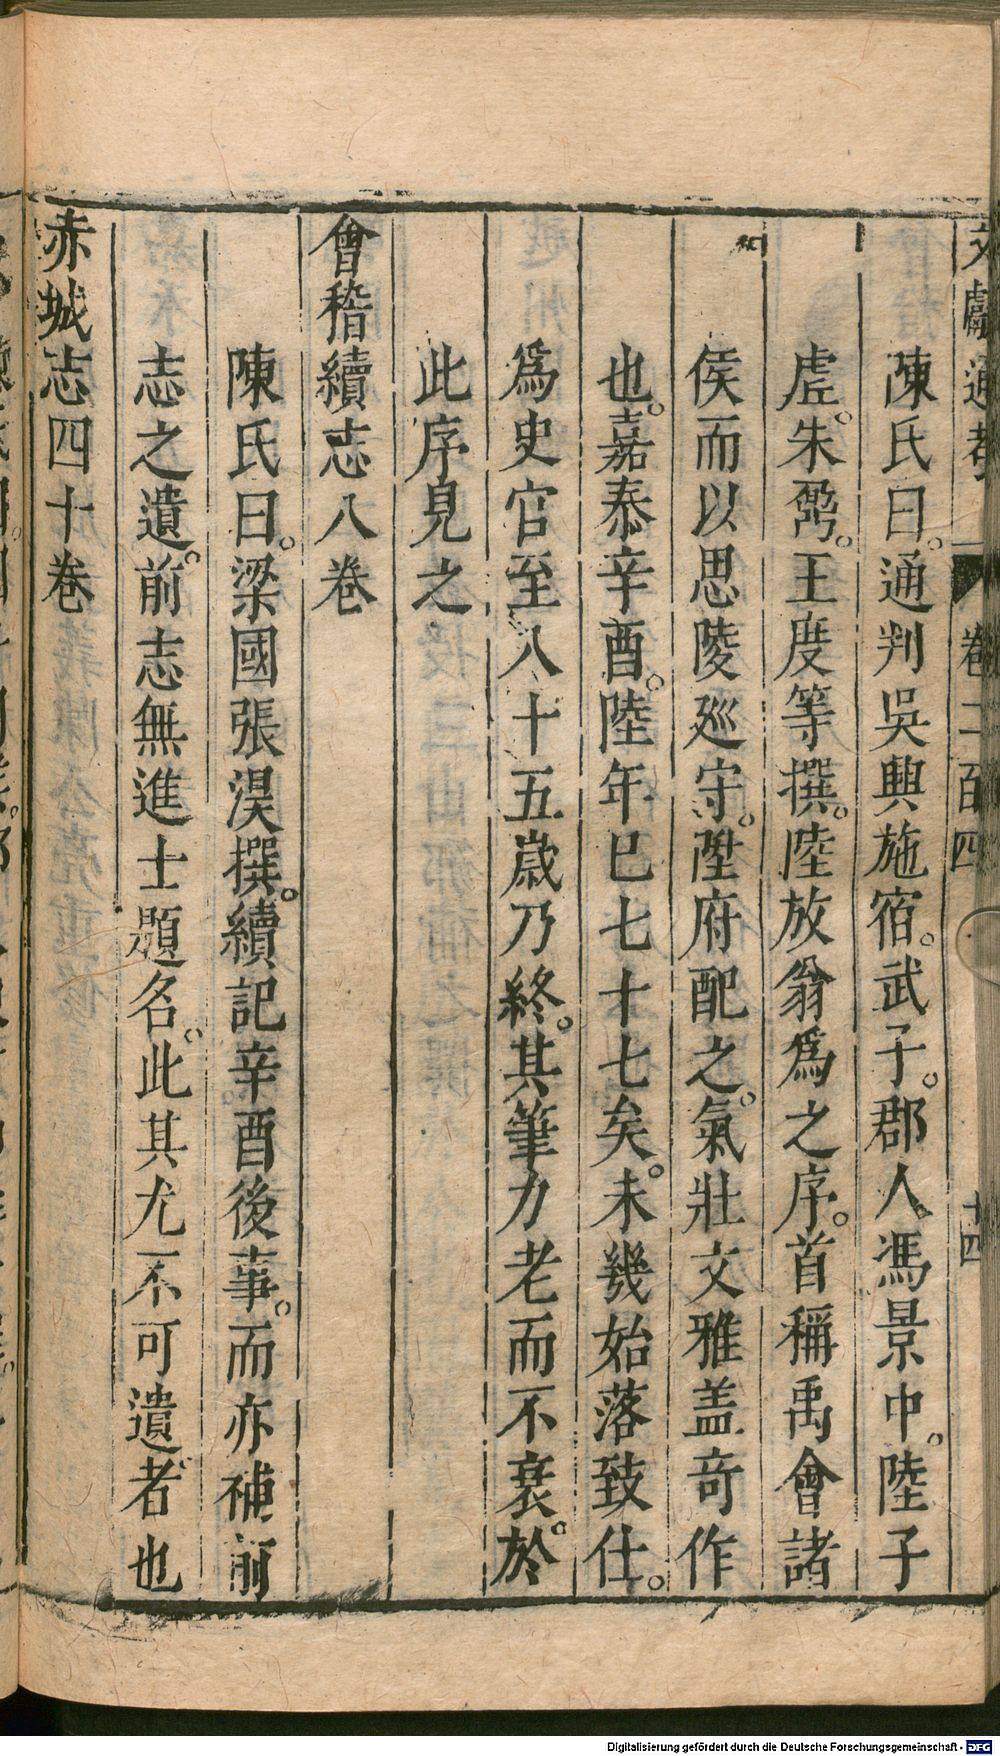 文獻通考 卷二百四 十四
陳氏曰。通判吳興施宿。武子。郡人馮景中。陸子
虗。朱鼐。王度等撰。陸放翁爲之序。首稱禹會諸
侯而以思陵廵守。陞府配之。氣壯文雅盖竒作
也。嘉泰辛酉。陸年巳七十七矣。未幾始落致仕。
爲史官至八十五歲乃終。其筆力老而不衰。於
此序見之
會稽續志八卷
陳氏曰。梁國張淏撰。續記辛酉後事。而亦補前
志之遺。前志無進士題名。此其尤不可遺者也
赤城志四十卷
Digitalisierung gefördert durch die Deutsche Forschungsgemeinschaft - DFG